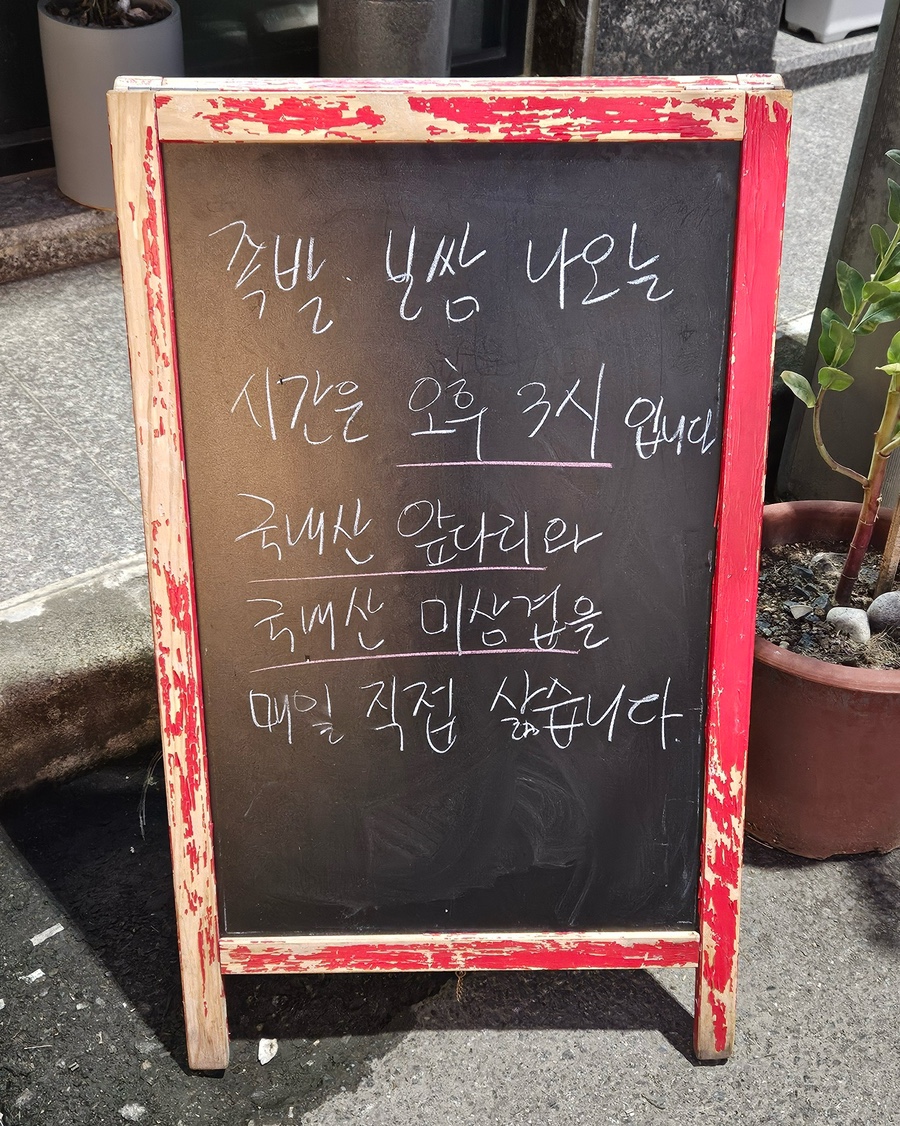 족발. 보쌈 나오는
시간은 오후 3시 입니다
국내산 앞다리와
국내산 미삼겹을
매일 직접 삶습니다.